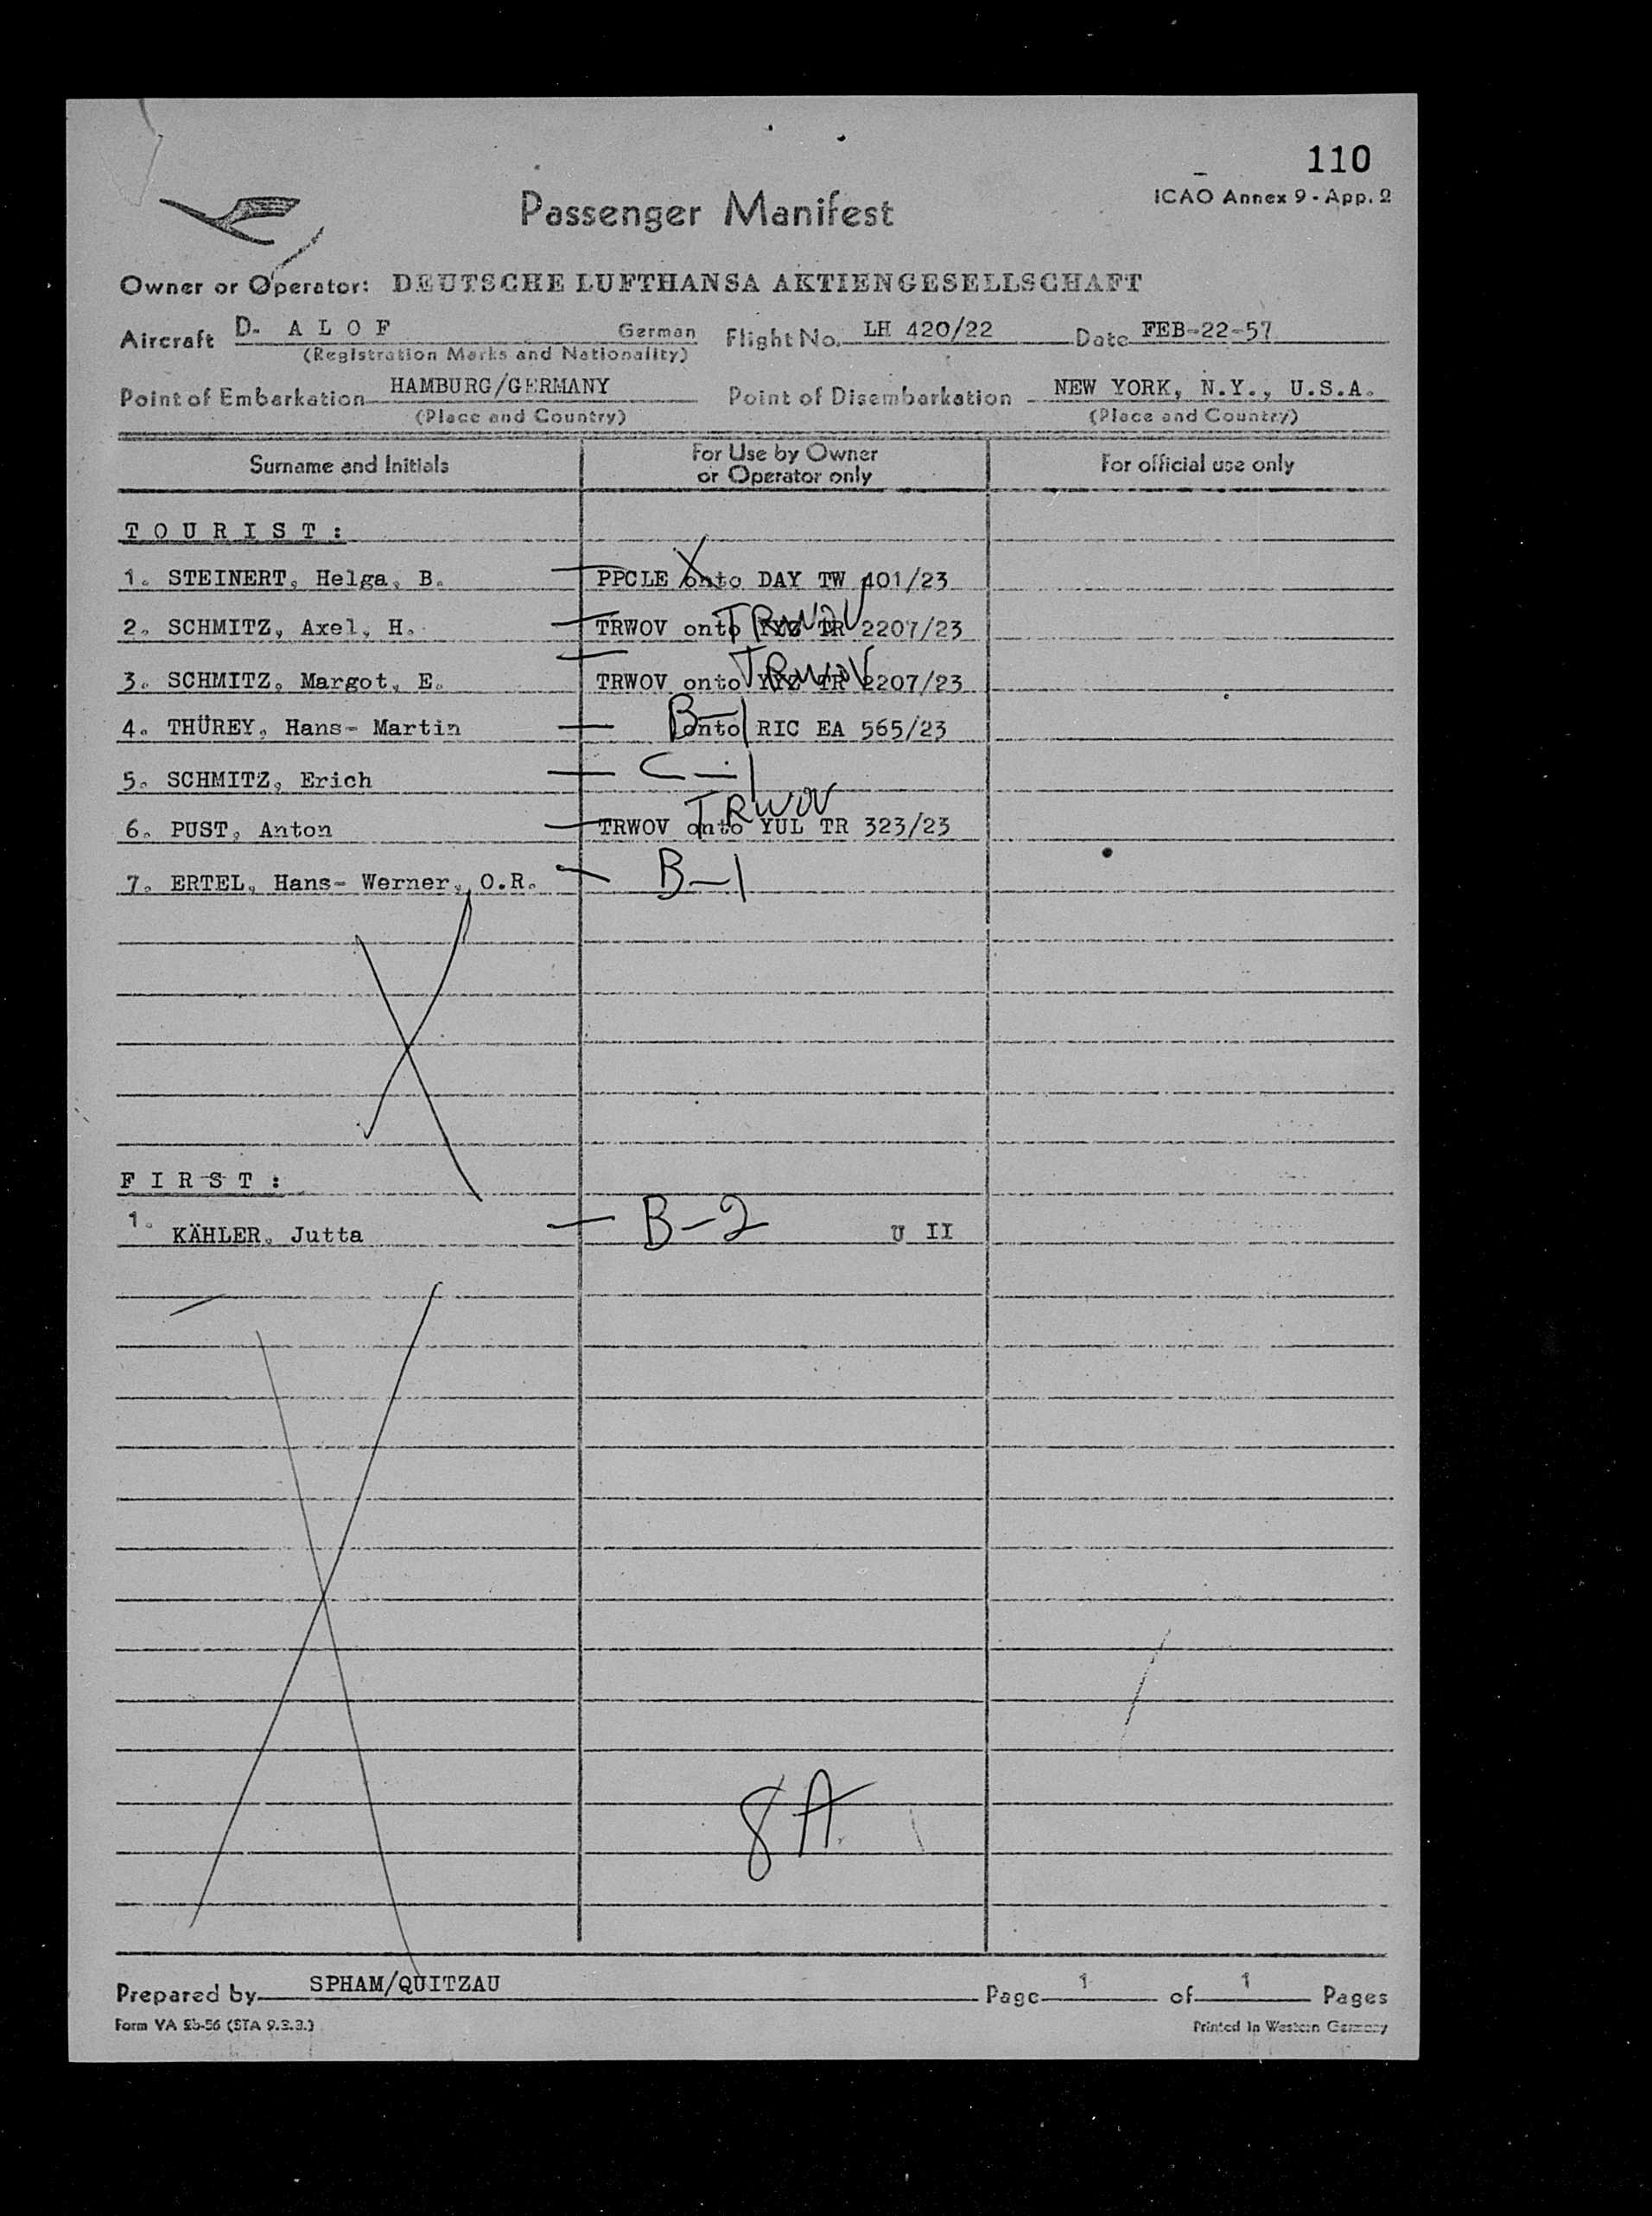 110
ICAO Annex 9 - App. 2
Passenger Manifest
Owner or Operator: DEUTSCHE LUFTHANSA AKTIENGESELLSCHAFT
Aircraft D- A L O F German Flight No. LH 420/22 Date FEB-22-57
(Registration Marks and Nationality)
Point of Embarkation HAMBURG/GERMANY Point of Disembarkation NEW YORK, N.Y., U.S.A.
(Place and Country) (Place and Country)
Surname and Initials For Use by Owner or Operator only For official use only
T O U R I S T :
1. STEINERT, Helga, B. PPCLE onto DAY TW 401/23 X
2. SCHMITZ, Axel, H. TRWOV onto TR 2207/23 TRWOV
3. SCHMITZ, Margot, E. TRWOV onto YYZ TR 2207/23 TRWOV
4. THÜREY, Hans- Martin B-1 onto RIC EA 565/23
5. SCHMITZ, Erich C-1
6. PUST, Anton TRWOV onto YUL TR 323/23 TRWOV
7. ERTEL, Hans- Werner, O.R. B-1
F I R S T :
1. KÄHLER, Jutta B-2 U II
8A
Prepared by SPHAM/QUITZAU Page 1 of 1 Pages
Form VA Printed in Western Germany